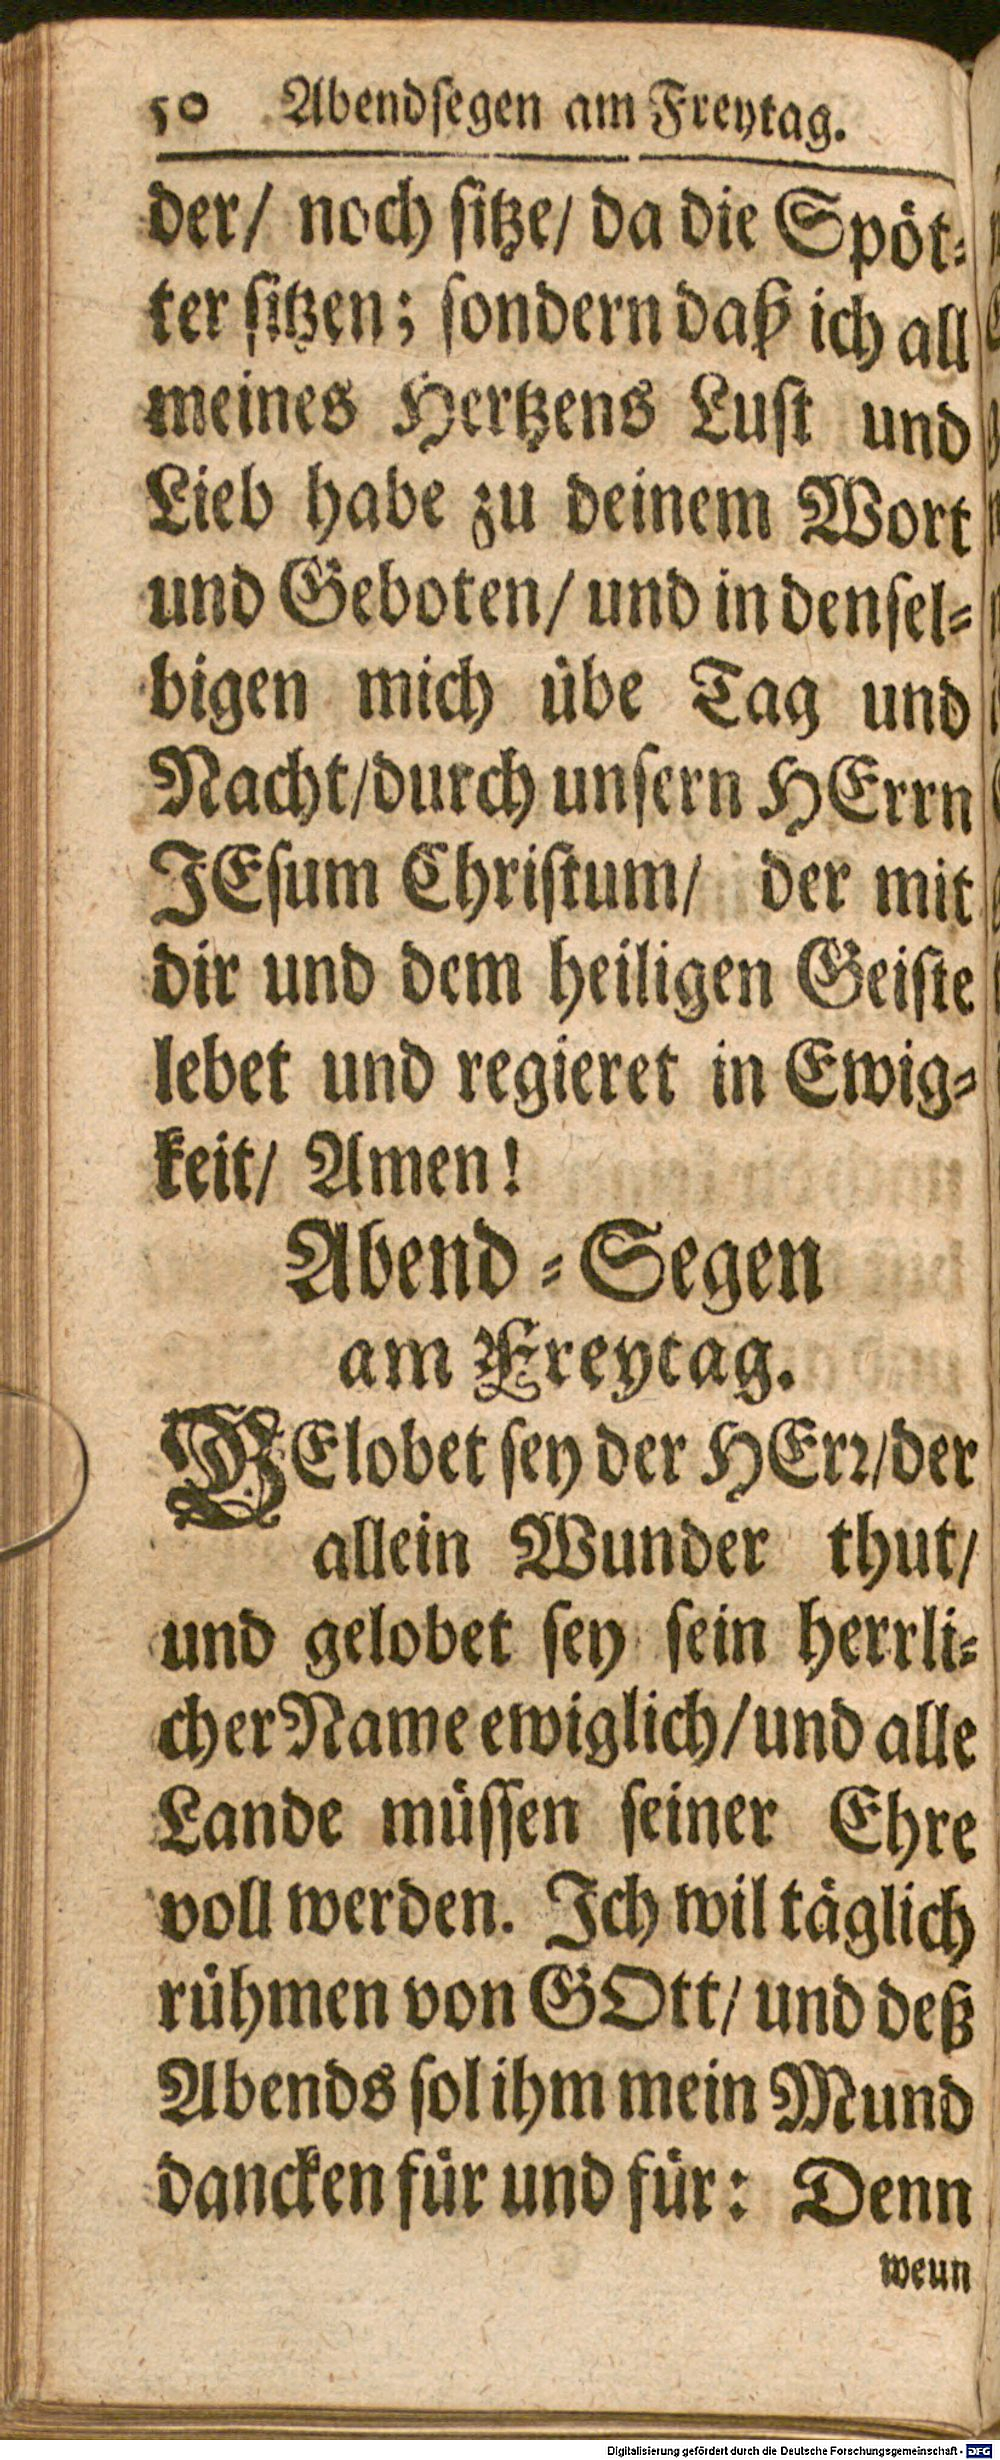 50 Abendsegen am Freytag.
der/ noch sitze/ da die Spöt-
ter sitzen; sondern daß ich all
meines Hertzens Lust und
Lieb habe zu deinem Wort
und Geboten/ und in densel-
bigen mich übe Tag und
Nacht/durch unsern HErrn
JEsum Christum/ der mit
dir und dem heiligen Geiste
lebet und regieret in Ewig-
keit/ Amen!
Abend-Segen
am Freytag.
GElobet sey der HErr/der
allein Wunder thut/
und gelobet sey sein herrli-
cher Name ewiglich/und alle
Lande müssen seiner Ehre
voll werden. Ich wil täglich
rühmen von GOtt/ und deß
Abends sol ihm mein Mund
dancken für und für: Denn
weun
Digitalisierung gefördert durch die Deutsche Forschungsgemeinschaft - DFG